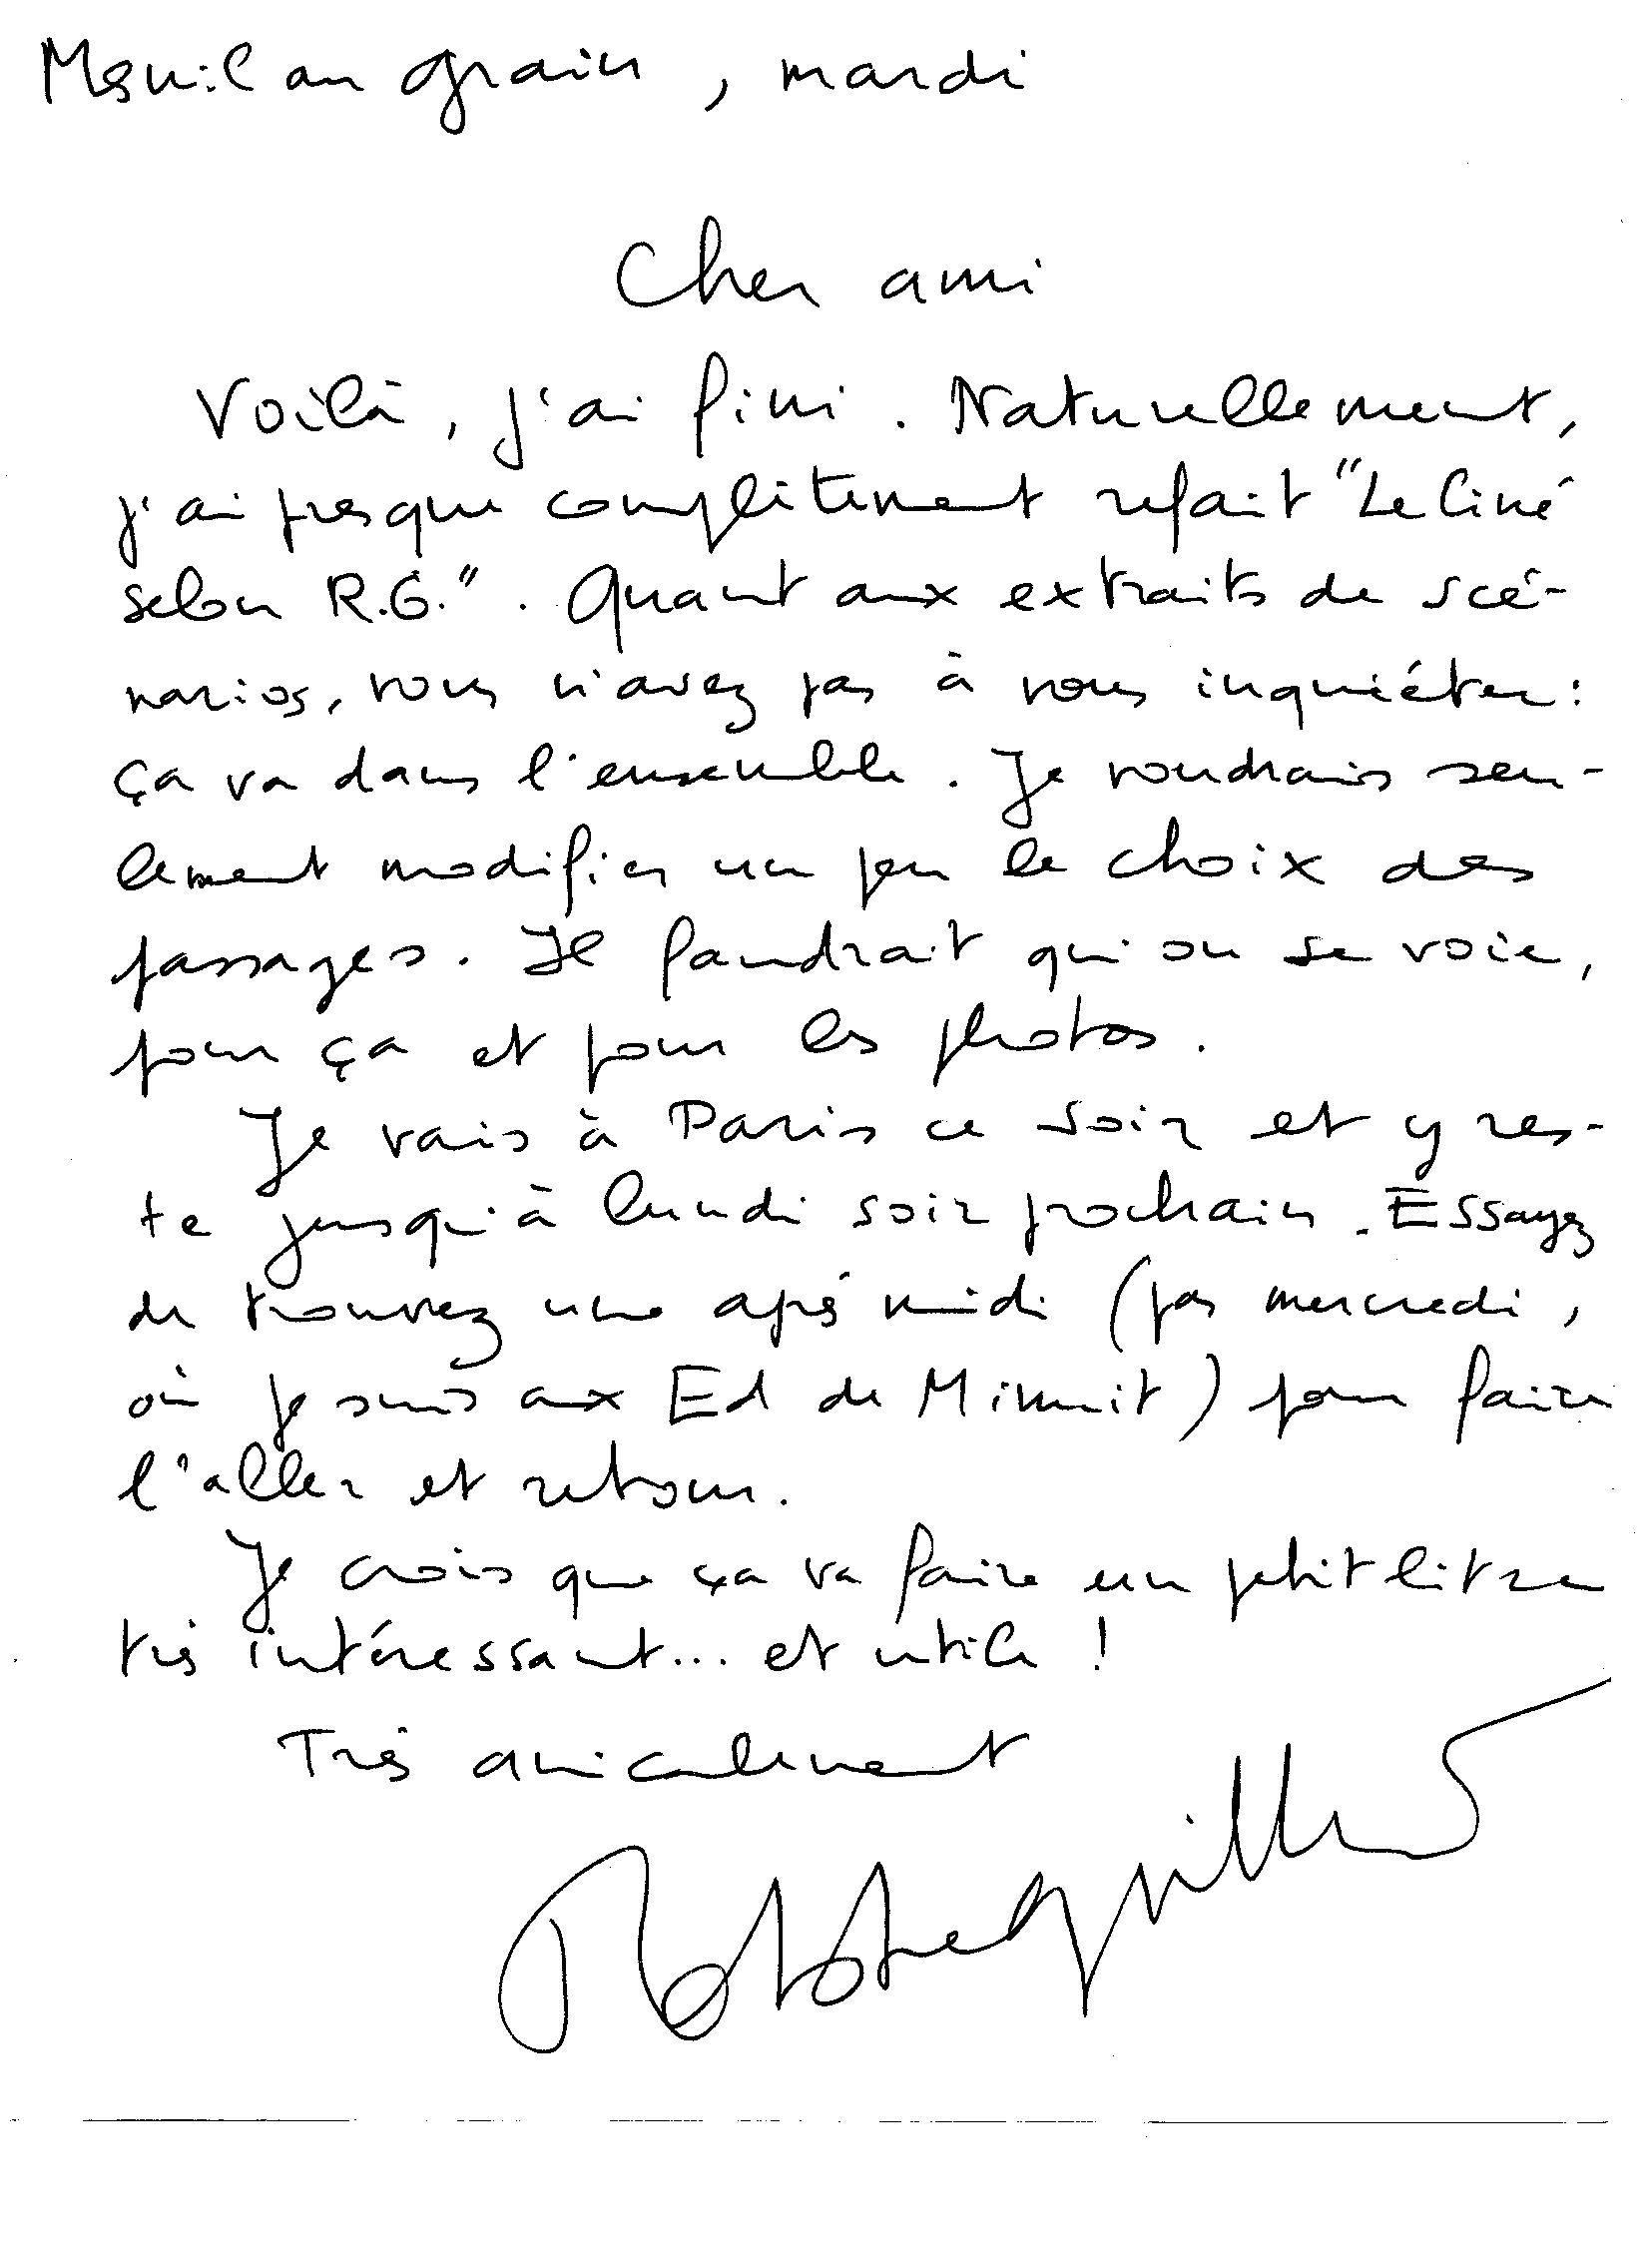 Mesnil au grain, mardi
Cher ami
Voilà, j'ai fini. Naturellement,
j'ai presque complètement refait "Le Ciné
selon R.G.". Quant aux extraits de scé-
narios, vous n'avez pas à vous inquiéter :
ça va dans l'ensemble. Je voudrais seu-
lement modifier un peu le choix des
passages. Il faudrait qu'on se voie,
pour ça et pour les photos.
Je vais à Paris ce soir et y res-
te jusqu'à lundi soir prochain. Essayez
de trouvez une aprè midi (pas mercredi,
où je suis aux Ed de Minuit) pour faire
l'aller et retour.
Je crois que ça va faire un petit litre
très intéressant... et utile !
Très amicalement
Robbe-Grillet